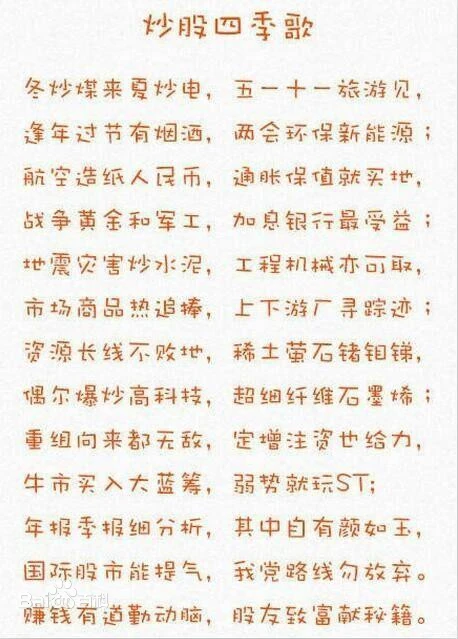 炒股四季歌
冬炒煤来夏炒电，五一十一旅游见，
逢年过节有烟酒，两会环保新能源；
航空造纸人民币，通胀保值就买地，
战争黄金和军工，加息银行最受益；
地震灾害炒水泥，工程机械亦可取，
市场商品热追捧，上下游厂寻踪迹；
资源长线不败地，稀土萤石锗钼锑，
偶尔爆炒高科技，超细纤维石墨烯；
重组向来都无敌，定增注资也给力，
牛市买入大蓝筹，弱势就玩ST；
年报季报细分析，其中自有颜如玉，
国际股市能提气，我党路线勿放弃。
赚钱有道勤动脑，股友致富献秘籍。
Baidu百科